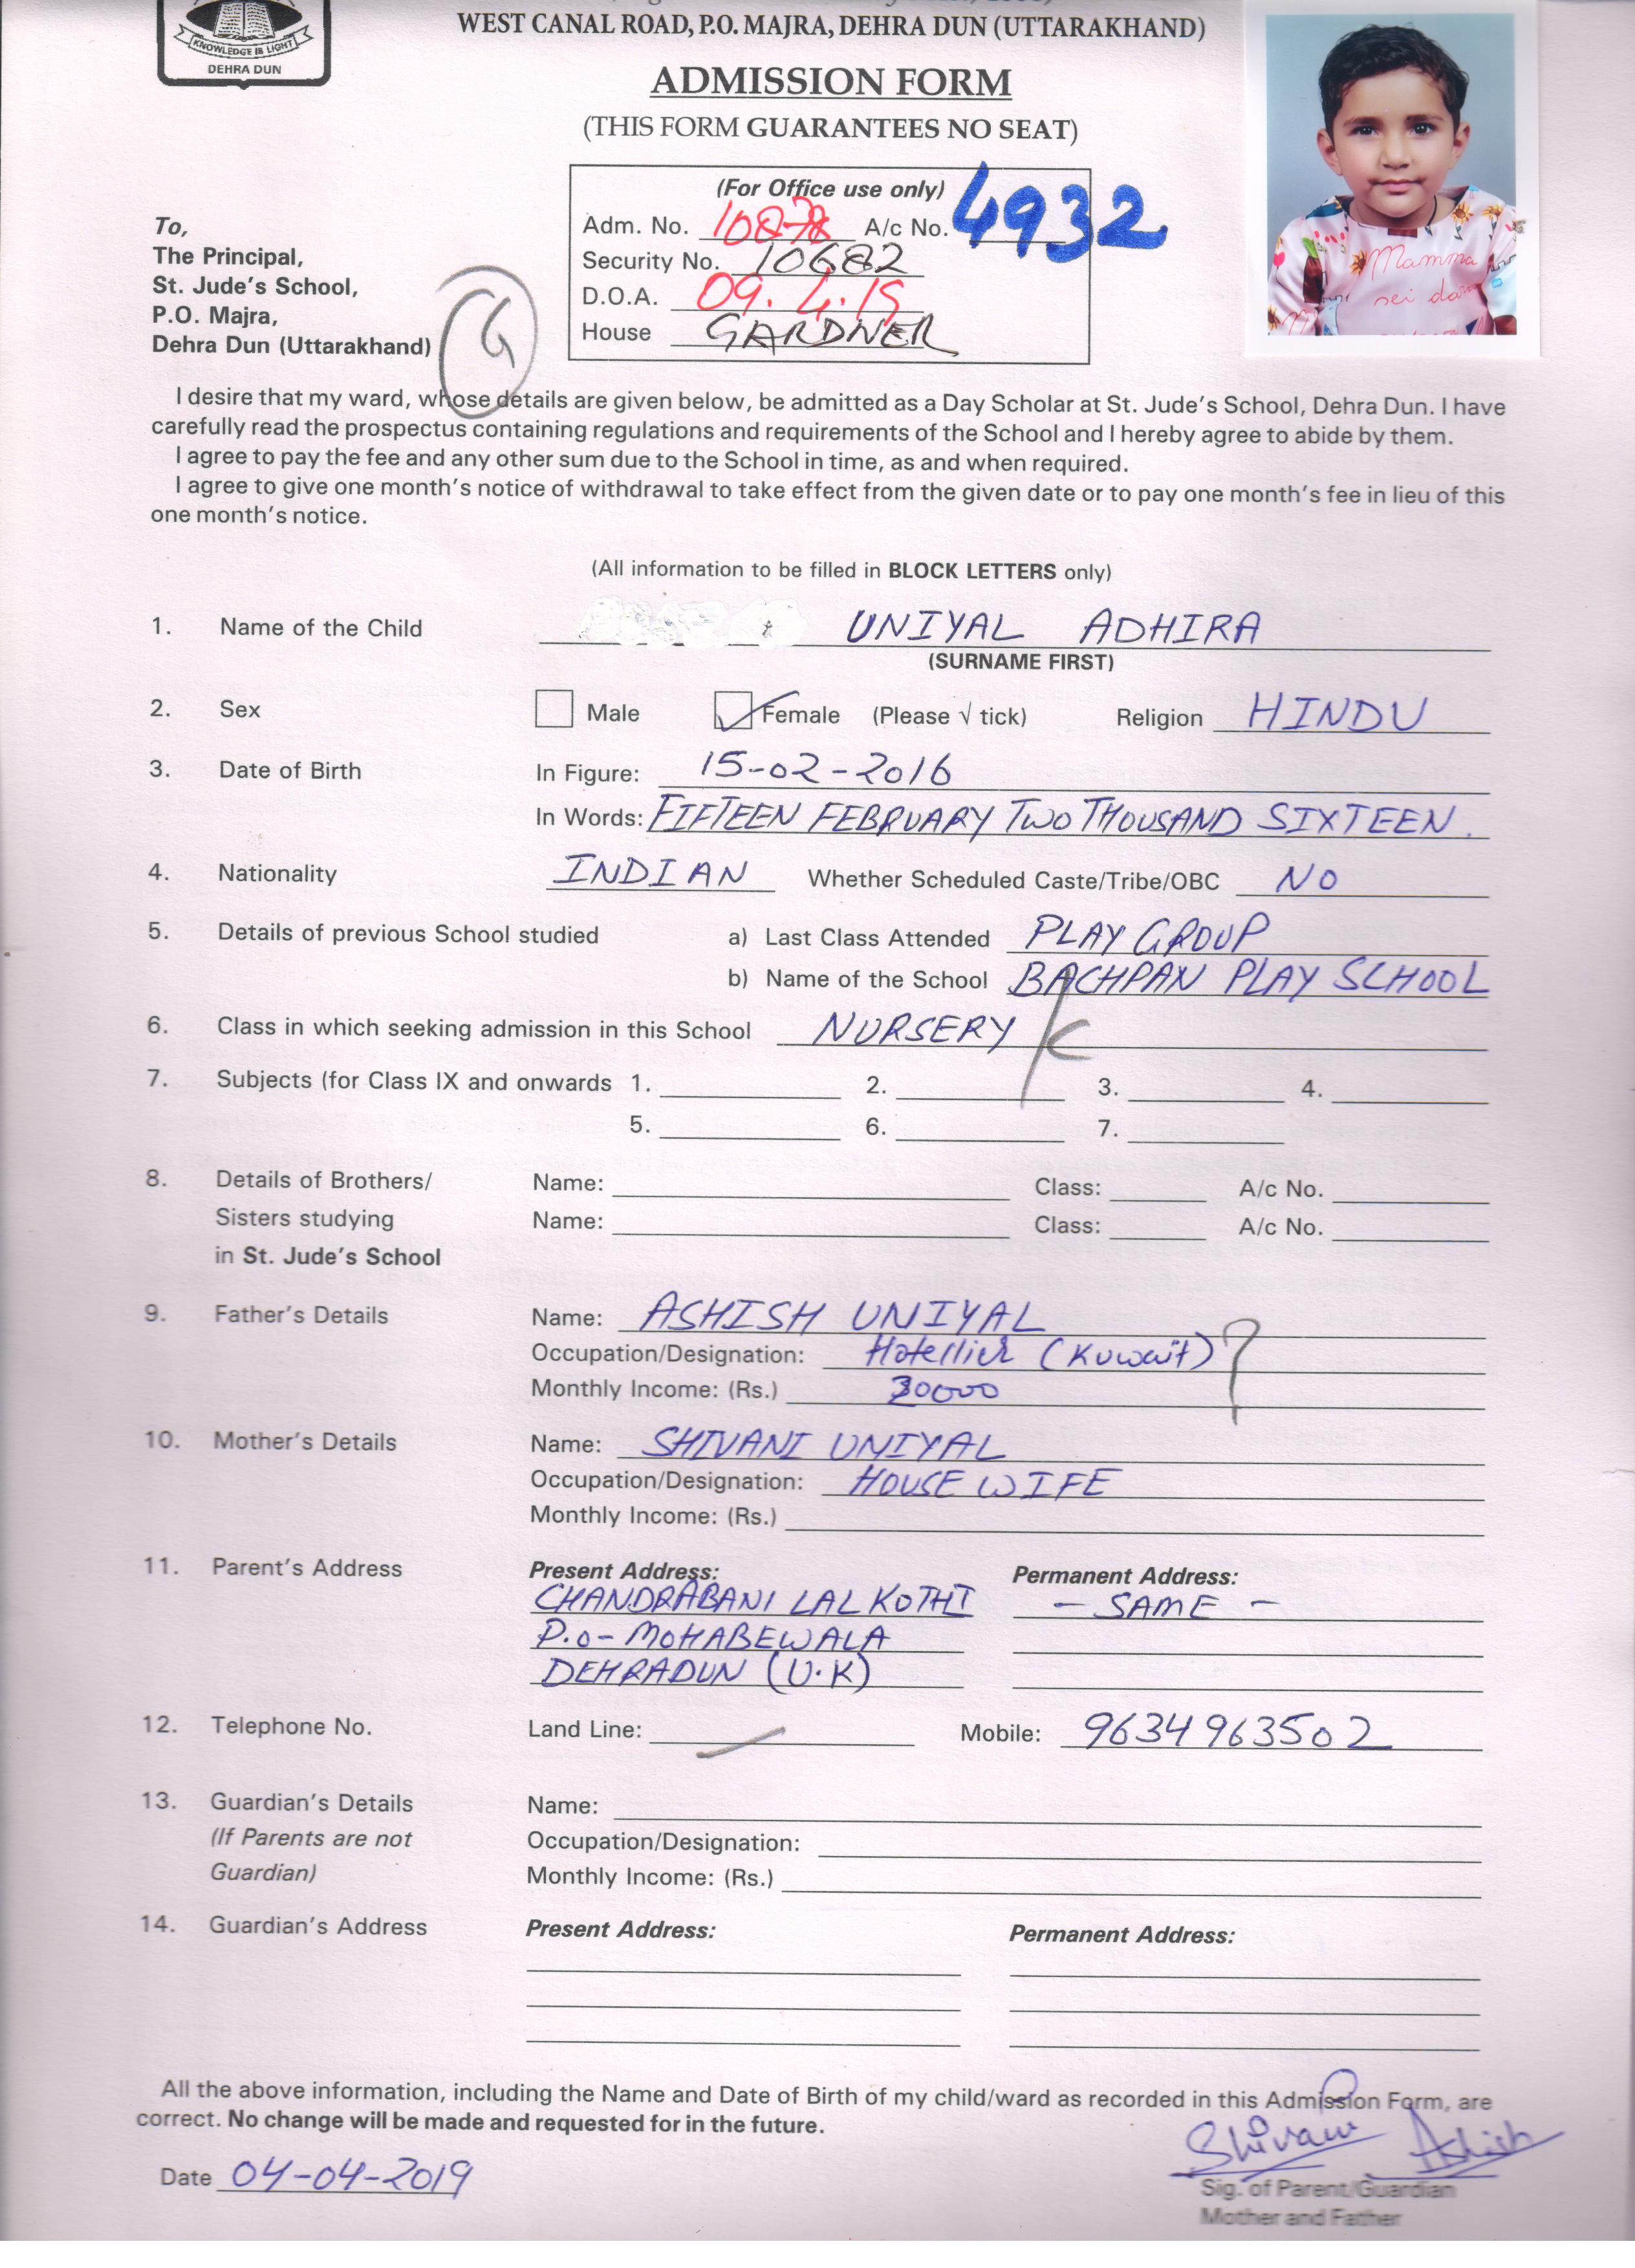 KNOWLEDGE IS LIGHT
DEHRA DUN
WEST CANAL ROAD, P.O. MAJRA, DEHRA DUN (UTTARAKHAND)
ADMISSION FORM
(THIS FORM GUARANTEES NO SEAT)
(For Office use only)
Adm. No. 10878 A/c No. 4932
Security No. 10682
D.O.A. 09.4.19
House GARDNER
To,
The Principal,
St. Jude's School,
P.O. Majra,
Dehra Dun (Uttarakhand)
G
Mamma
sei
I desire that my ward, whose details are given below, be admitted as a Day Scholar at St. Jude's School, Dehra Dun. I have
carefully read the prospectus containing regulations and requirements of the School and I hereby agree to abide by them.
I agree to pay the fee and any other sum due to the School in time, as and when required.
I agree to give one month's notice of withdrawal to take effect from the given date or to pay one month's fee in lieu of this
one month's notice.
(All information to be filled in BLOCK LETTERS only)
1. Name of the Child UNIYAL ADHIRA
(SURNAME FIRST)
2. Sex Male Female (Please √ tick) Religion HINDU
3. Date of Birth In Figure: 15-02-2016
In Words: FIFTEEN FEBRUARY TWO THOUSAND SIXTEEN.
4. Nationality INDIAN Whether Scheduled Caste/Tribe/OBC NO
5. Details of previous School studied a) Last Class Attended PLAY GROUP
b) Name of the School BACHPAN PLAY SCHOOL
6. Class in which seeking admission in this School NURSERY
7. Subjects (for Class IX and onwards 1. 2. 3. 4.
5. 6. 7.
8. Details of Brothers/ Name: Class: A/c No.
Sisters studying Name: Class: A/c No.
in St. Jude's School
9. Father's Details Name: ASHISH UNIYAL
Occupation/Designation: Hotellier (Kuwait) ?
Monthly Income: (Rs.) 30000
10. Mother's Details Name: SHIVANI UNIYAL
Occupation/Designation: HOUSE WIFE
Monthly Income: (Rs.)
11. Parent's Address Present Address: Permanent Address:
CHANDRABANI LAL KOTHI - SAME -
P.O- MOHABEWALA
DEHRADUN (U.K)
12. Telephone No. Land Line: Mobile: 9634963502
13. Guardian's Details Name:
(If Parents are not Occupation/Designation:
Guardian) Monthly Income: (Rs.)
14. Guardian's Address Present Address: Permanent Address:
All the above information, including the Name and Date of Birth of my child/ward as recorded in this Admission Form, are
correct. No change will be made and requested for in the future.
Shivani Ashish
Date 04-04-2019
Sig. of Parent/Guardian
Mother and Father